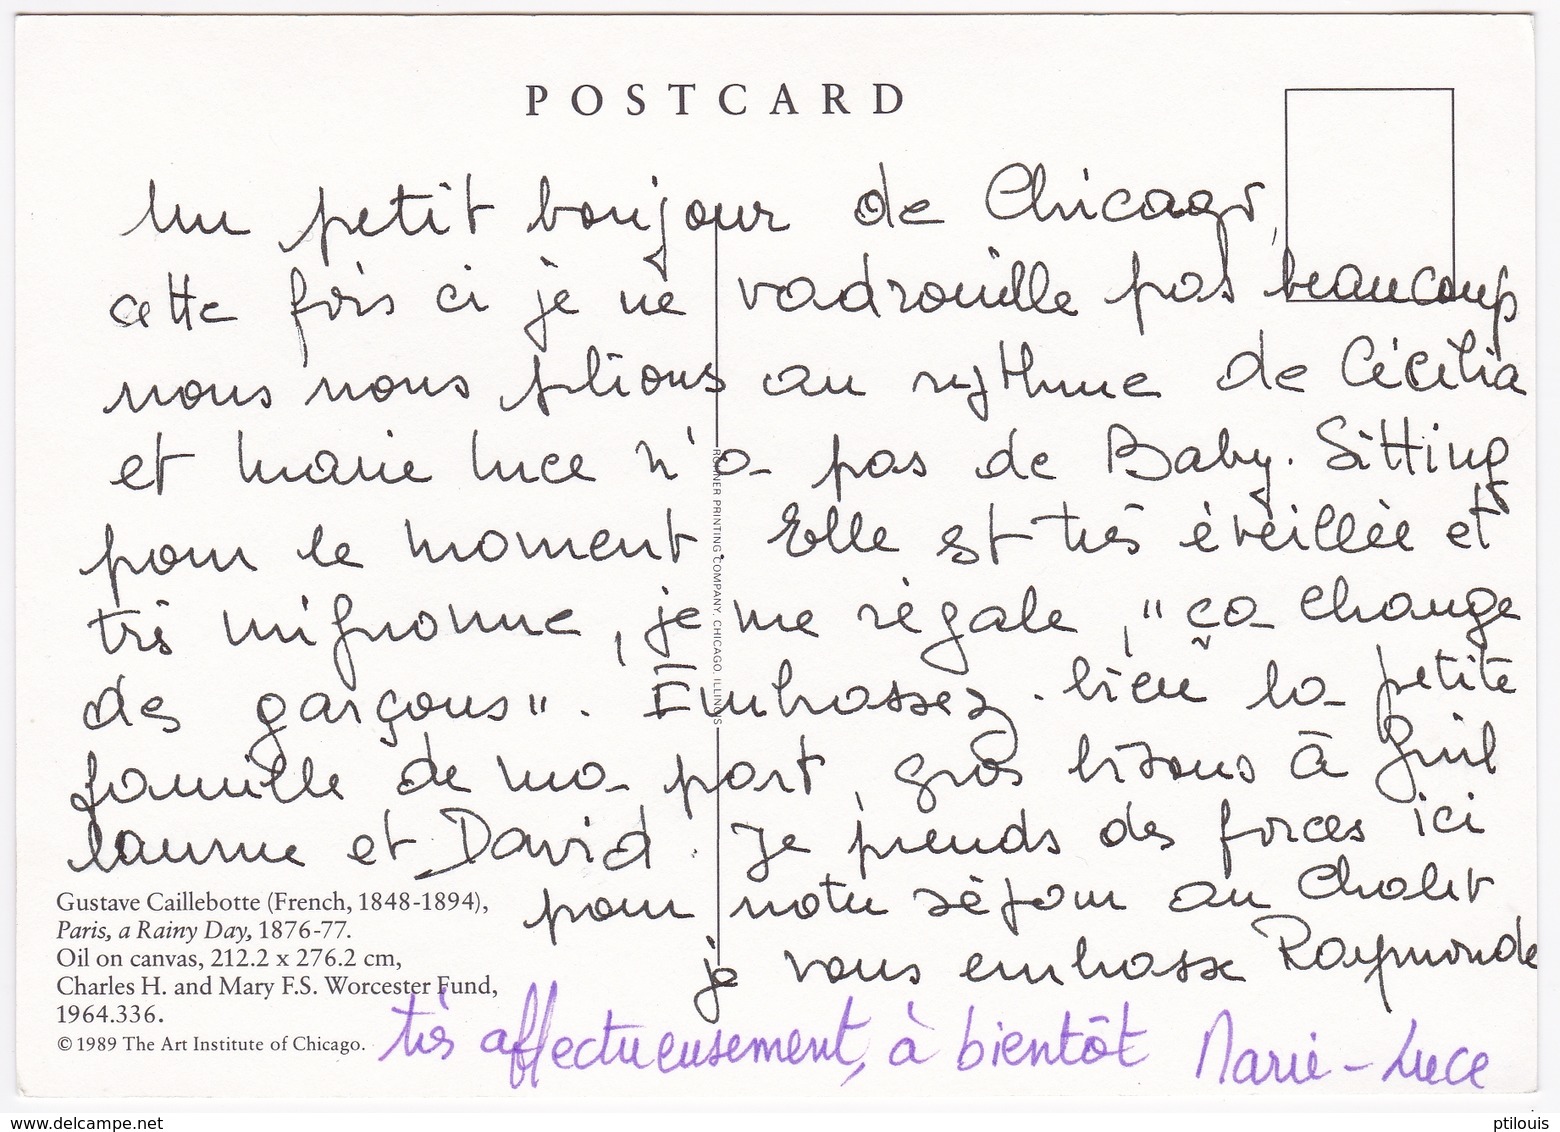 POSTCARD
Un petit bonjour de Chicago,
cette fois ci je ne vadrouille pas beaucoup
nous nous plions au rythme de Cécilia
et marie luce n'a pas de Baby. Sitting
pour le moment. Elle est très éveillée et
très mignonne, je me régale, "ça change
des garçons". Embrassez. bien la petite
famille de ma part, gros bisous à Guil
laume et David. Je prends des forces ici
pour notre séjour au Chalet
je vous embrasse Raymonde
très affectueusement, à bientôt Marie-Luce
ROHNER PRINTING COMPANY, CHICAGO, ILLINOIS
Gustave Caillebotte (French, 1848-1894),
Paris, a Rainy Day, 1876-77.
Oil on canvas, 212.2 x 276.2 cm,
Charles H. and Mary F.S. Worcester Fund,
1964.336.
© 1989 The Art Institute of Chicago.
www.delcampe.net
ptilouis